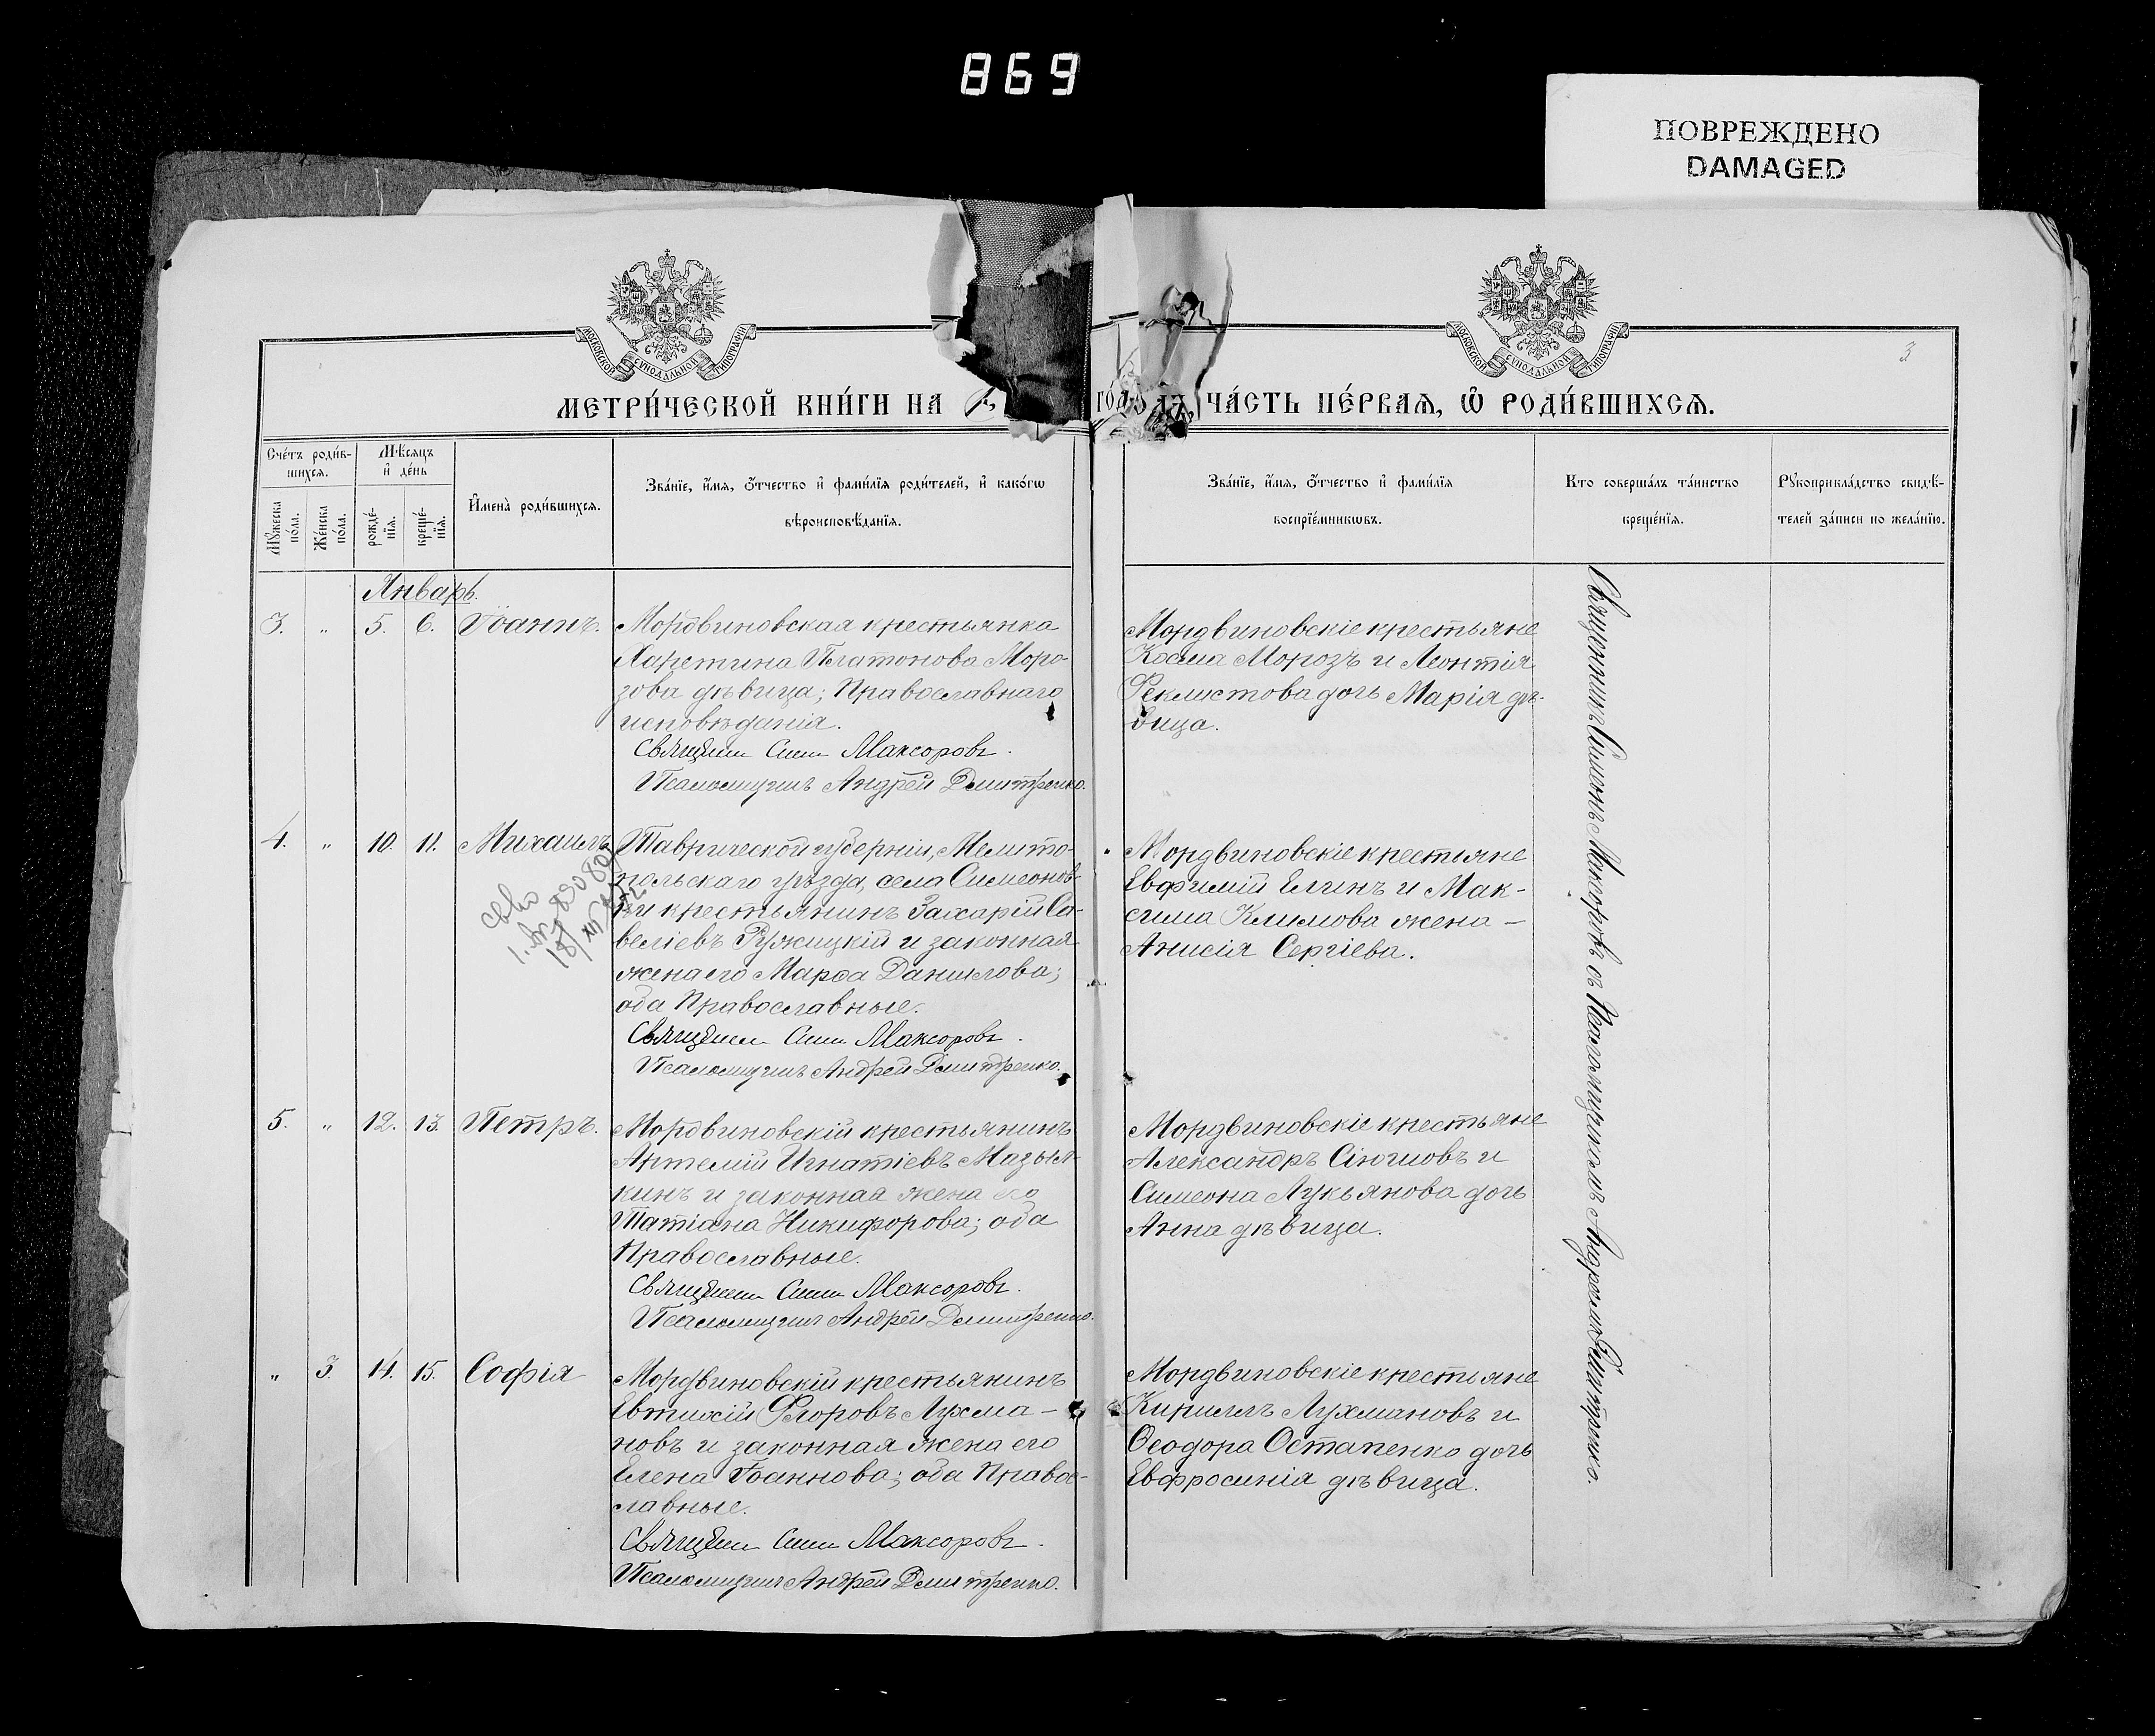 869
ПОВРЕЖДЕНО
DAMAGED
МОСКОВСКОЙ СУНОДАЛЬНОЙ ТИПОГРАФІИ
МОСКОВСКОЙ СУНОДАЛЬНОЙ ТИПОГРАФІИ
3
МЕТРИ́ЧЕСКОЙ КНИ́ГИ НА
ЧА́СТЬ ПЕ́РВАѦ, Ѡ҆ РОДИ́ВШИХСѦ.
Сче́тъ роди́в-
шихсѧ.
Мѣ́сѧцъ
и҆ де́нь
Мꙋ́жеска
по́ла.
Же́нска
по́ла.
рожде́-
нїѧ.
креще́-
нїѧ.
И҆мена̀ роди́вшихсѧ.
Зва́нїе, и҆́мѧ, ѻ҆́тчество и҆ фами́лїѧ роди́телей, и҆ како́гѡ
вѣроисповѣ́данїѧ.
Зва́нїе, и҆́мѧ, ѻ҆́тчество и҆ фами́лїѧ
воспрїе́мникѡвъ.
Кто соверша́лъ та́инство
креще́нїѧ.
Рꙋкоприкла́дство свидѣ́-
телей за́писи по жела́нїю.
Январь.
3. " 5. 6. Іоаннъ.
Мордвиновская крестьянка
Харетина Платонова Моро-
зова дѣвица; Православнаго
исповѣданія.
Священ Сим Максоровъ.
Псаломщикъ Андрей Дмитренко.
Мордвиновскіе крестьяне
Косма Морозъ и Леонтія
Феклистова дочь Марія дѣ-
вица.
4. " 10. 11. Михаилъ
Таврической губерніи, Мелито-
польскаго уѣзда, села Симеонов-
ки крестьянинъ Захарій Са-
веліевъ Ружицкій и законная
жена его Марѳа Данилова;
оба Православные.
Священ Сим Максоровъ.
Псаломщикъ Андрей Дмитренко.
Мордвиновскіе крестьяне
Евфимій Елинъ и Мак-
сима Климова жена –
Анисія Сергіева.
5. " 12. 13. Петръ.
Мордвиновскій крестьянинъ
Артемій Игнатіевъ Мазыл-
кинъ и законная жена его
Татіана Никифорова; оба
Православные.
Священ Сим Максоровъ.
Псаломщикъ Андрей Дмитренко.
Мордвиновскіе крестьяне
Александръ и
Симеона Лукьянова дочь
Анна дѣвица.
" 3. 14. 15. Софія
Мордвиновскій крестьянинъ
Евтихій Ѳедоровъ Лухма-
новъ и законная жена его
Елена Іоаннова; оба Право-
славные.
Священ Сим Максоровъ.
Псаломщикъ Андрей Дмитренко.
Мордвиновскіе крестьяне
Кириллъ Лухмановъ и
Ѳеодора Остапенко дочь
Евфросинія дѣвица.
Священникъ Симеонъ Максоровъ съ Псаломщикомъ Андреемъ Дмитренко.